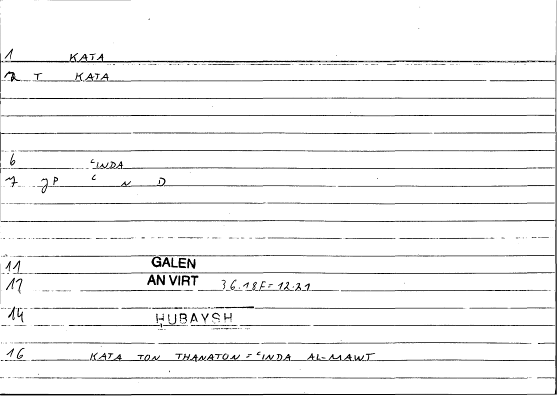 1 KATA
2 T KATA
6 ʿINDA
7 JP ʿ N D
11 GALEN
12 AN VIRT 36.18F=12.21
14 ḤUBAYSH
16 KATA TON THANATON = ʿINDA AL-MAWT